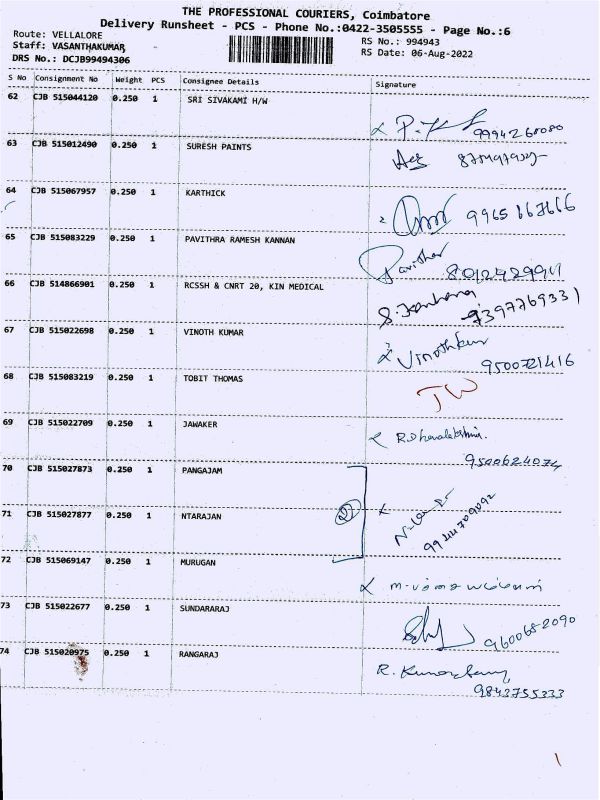 THE PROFESSIONAL COURIERS, Coimbatore
Delivery Runsheet - PCS - Phone No.:0422-3505555 - Page No.:6
Route: VELLALORE
Staff: VASANTHAKUMAR
DRS No.: DCJB99494306
RS No.: 994943
RS Date: 06-Aug-2022
S No Consignment No Weight PCS Consignee Details Signature
62 CJB 515044120 0.250 1 SRI SIVAKAMI H/W
63 CJB 515012490 0.250 1 SURESH PAINTS
64 CJB 515067957 0.250 1 KARTHICK
9965167666
65 CJB 515083229 0.250 1 PAVITHRA RAMESH KANNAN
66 CJB 514866901 0.250 1 RCSSH & CNRT 20, KIN MEDICAL
9397769331
67 CJB 515022698 0.250 1 VINOTH KUMAR
9500721416
68 CJB 515083219 0.250 1 TOBIT THOMAS
69 CJB 515022709 0.250 1 JAWAKER
9500624074
70 CJB 515027873 0.250 1 PANGAJAM
71 CJB 515027877 0.250 1 NTARAJAN
72 CJB 515069147 0.250 1 MURUGAN
73 CJB 515022677 0.250 1 SUNDARARAJ
9600682090
74 CJB 515020975 0.250 1 RANGARAJ
9843755333